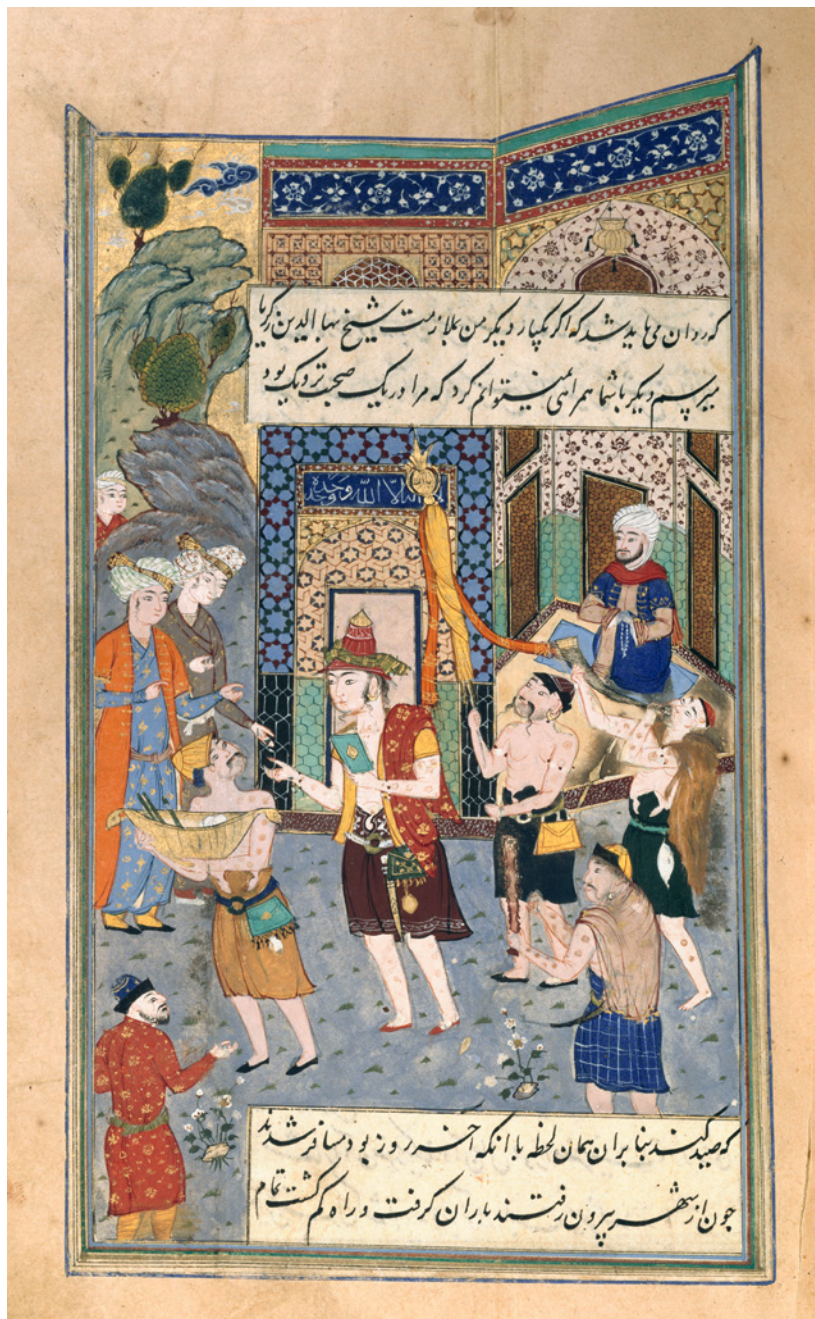 که ردان می باید شد که اکر یکبار دیکر من بملازمت شیخ بها الدین زکریا
میرسم دیکر با شما همراهی نمیتوانم کرد که مرا در یک صحبت نزدیک بود
لا اله الا الله وحده وحده
که صید کند بنابران همان لحظه با انکه آخر روز بود مسافر شدند
چون از شهر بیرون رفتند باران کرفت و راه کم کشت تمام